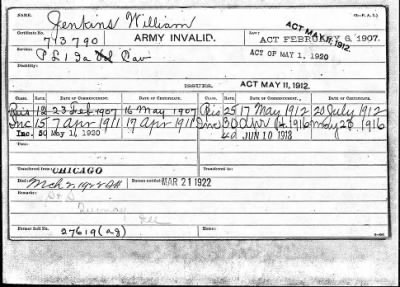 NAME.
Jenkins William
(3-P. A. I.)
Certificate No.
713790
ARMY INVALID.
Law:
ACT FEBRUARY 6, 1907.
ACT MAY 11, 1912.
Service:
Cav
ACT OF MAY 1, 1920
Disability:
ISSUES.
ACT MAY 11, 1912.
CLASS. RATE. DATE OF COMMENCEMENT. DATE OF CERTIFICATE. CLASS. RATE. DATE OF COMMENCEMENT. DATE OF CERTIFICATE.
Ris 12 23 Feb 1907 16 May 1907 Ris 25 17 May 1912 20 July 1912
Inc 15 7 Apr 1911 17 Apr 1911 Inc 30 Apr 14 1916 May 23 1916
Inc. 50 May 1, 1920 40 JUN 10 1918
Transferred from
CHICAGO
Transferred to:
Died:
Mch 2, 1922
Bureau notified:
MAR 21 1922
Remarks:
Quincy
Ill
Former Roll No.
27619 (ag)